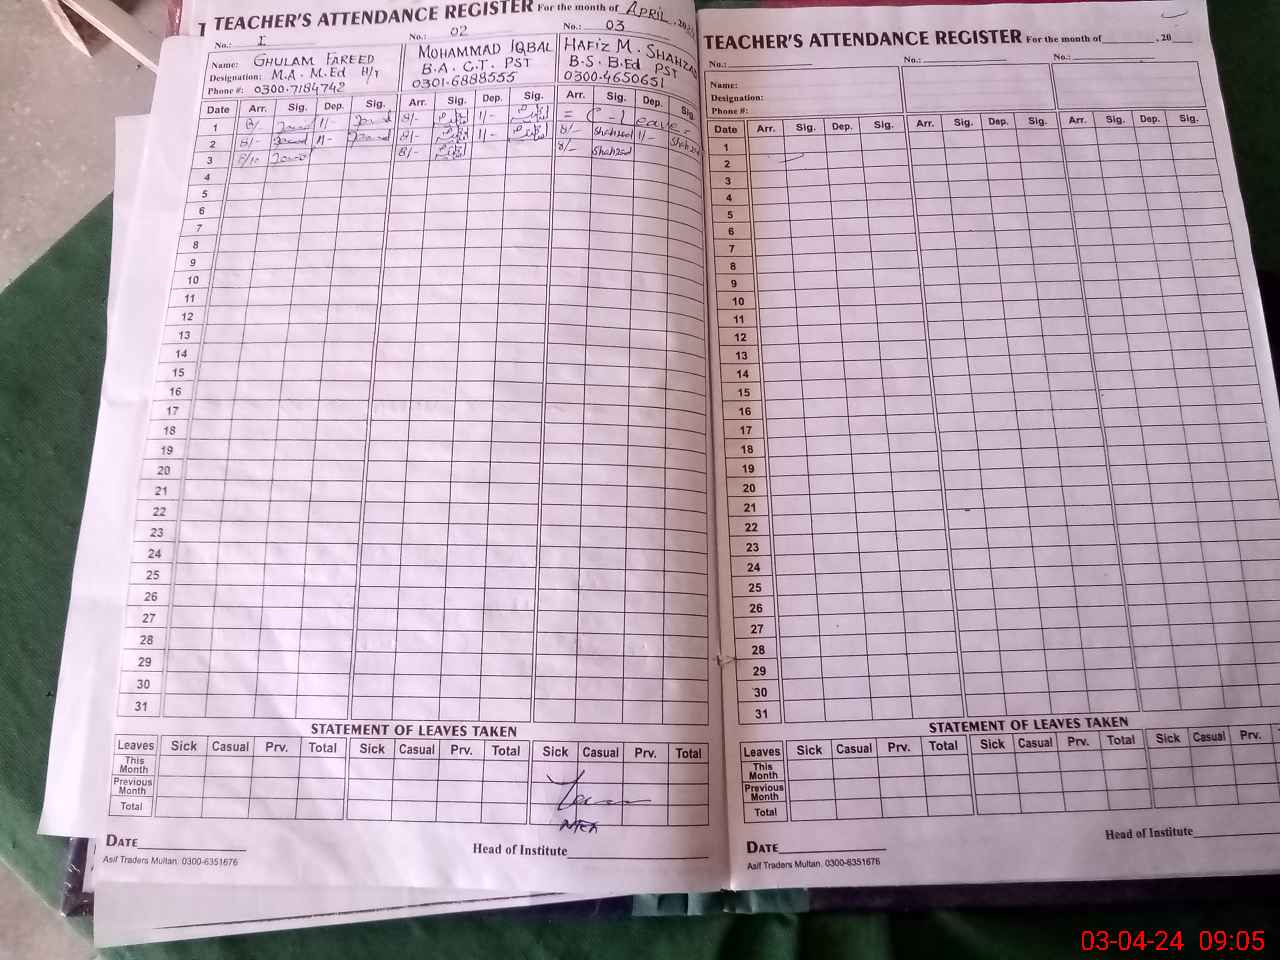 TEACHER'S ATTENDANCE REGISTER For the month of APRIL, 20
No.: I No.: 02 No.: 03
Name: GHULAM FAREED
Designation: M.A. M.Ed H/T
Phone #: 0300-7184742
MOHAMMAD IQBAL
B.A. C.T. PST
0301-6888555
HAFIZ M. SHAHZAD
B.S. B.Ed PST
0300-4650651
Date Arr. Sig. Dep. Sig. Arr. Sig. Dep. Sig. Arr. Sig. Dep. Sig.
1 8/- 11/- 8/- 11/- = C-Leave-
2 8/- 11/- 8/- 11/- 8/- Shahzad 11/- Shahzad
3 8/10 8/- 8/- Shahzad
4
5
6
7
8
9
10
11
12
13
14
15
16
17
18
19
20
21
22
23
24
25
26
27
28
29
30
31
STATEMENT OF LEAVES TAKEN
Leaves Sick Casual Prv. Total Sick Casual Prv. Total Sick Casual Prv. Total
This Month
Previous Month
Total
DATE
Head of Institute
Asif Traders Multan. 0300-6351676
TEACHER'S ATTENDANCE REGISTER For the month of , 20
No.: No.: No.:
Name:
Designation:
Phone #:
Date Arr. Sig. Dep. Sig. Arr. Sig. Dep. Sig. Arr. Sig. Dep. Sig.
1
2
3
4
5
6
7
8
9
10
11
12
13
14
15
16
17
18
19
20
21
22
23
24
25
26
27
28
29
30
31
STATEMENT OF LEAVES TAKEN
Leaves Sick Casual Prv. Total Sick Casual Prv. Total Sick Casual Prv.
This Month
Previous Month
Total
DATE
Head of Institute
Asif Traders Multan. 0300-6351676
03-04-24 09:05